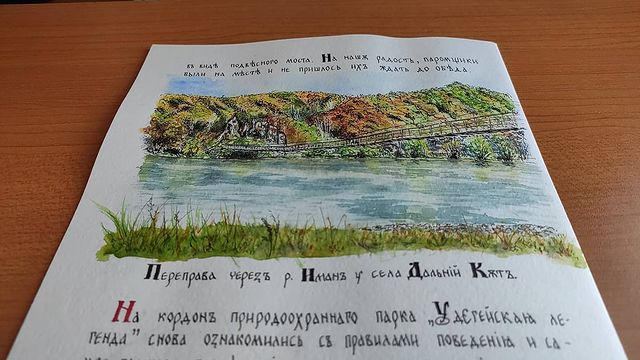 въ видѣ подвѣснаго моста. На нашѫ радость, паромщики
были на мѣстѣ и не пришлось ихъ ждать до обѣда.
Переправа черезъ р. Иманъ у села Дальнiй Кѫтъ.
На кордонѣ природоохраннаго парка „Удѣгейскаꙗ ле-
генда" снова ознакомились съ правилами поведенiꙗ и са-